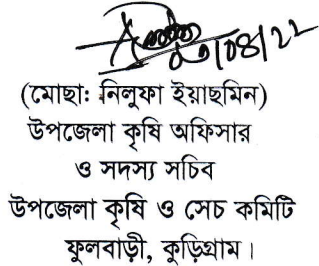 (মোছা: নিলুফা ইয়াছমিন)
উপজেলা কৃষি অফিসার
ও সদস্য সচিব
উপজেলা কৃষি ও সেচ কমিটি
ফুলবাড়ী, কুড়িগ্রাম।